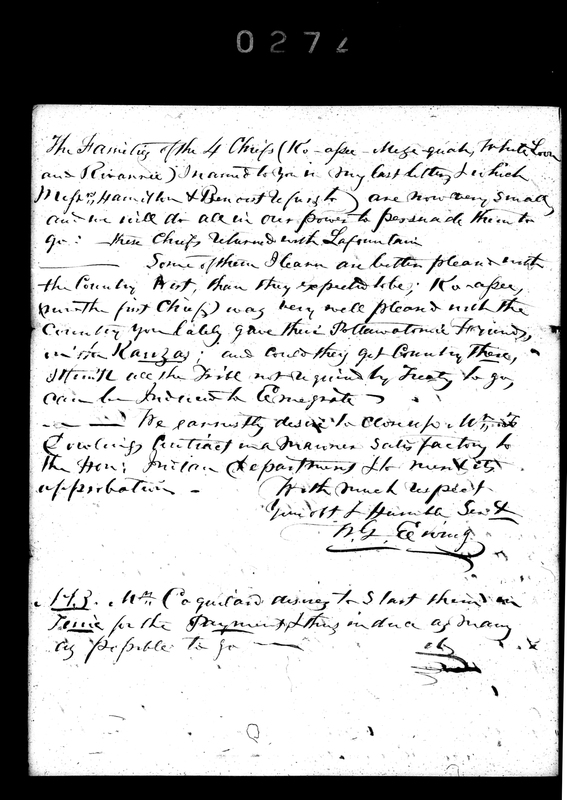 0272
The Families of the 4 Chiefs (Ko-a-pee-Meze-quah, White Loon
and Rivannie) I named to you in my last letter, & which
Messrs, Hamilton & Benoist refused to) are now very small,
and we will do all in our power to persuade them to
go: these Chiefs returned with Lafountain
Some of them I learn are better pleased with
the Country West, than they expected to be; Ko-apee,
the first Chief) was very well pleased with the
Country you lately gave their Pottawatomie friends,
on the Kanzas; and could they get Country there,
I think all the Tribe not required by Treaty to go,
can be Induced to Emigrate
We earnestly desire to close up Mr
Cowlings Contract in a manner satisfactory to
the Hon: Indian Department & to merit its
approbation -
With much respect
Your obt & Humble Servt
W. G. Ewing
N.B. Mr. Coquillard desires to start them in
Time for the Payment, & thus induce as many
as possible to go